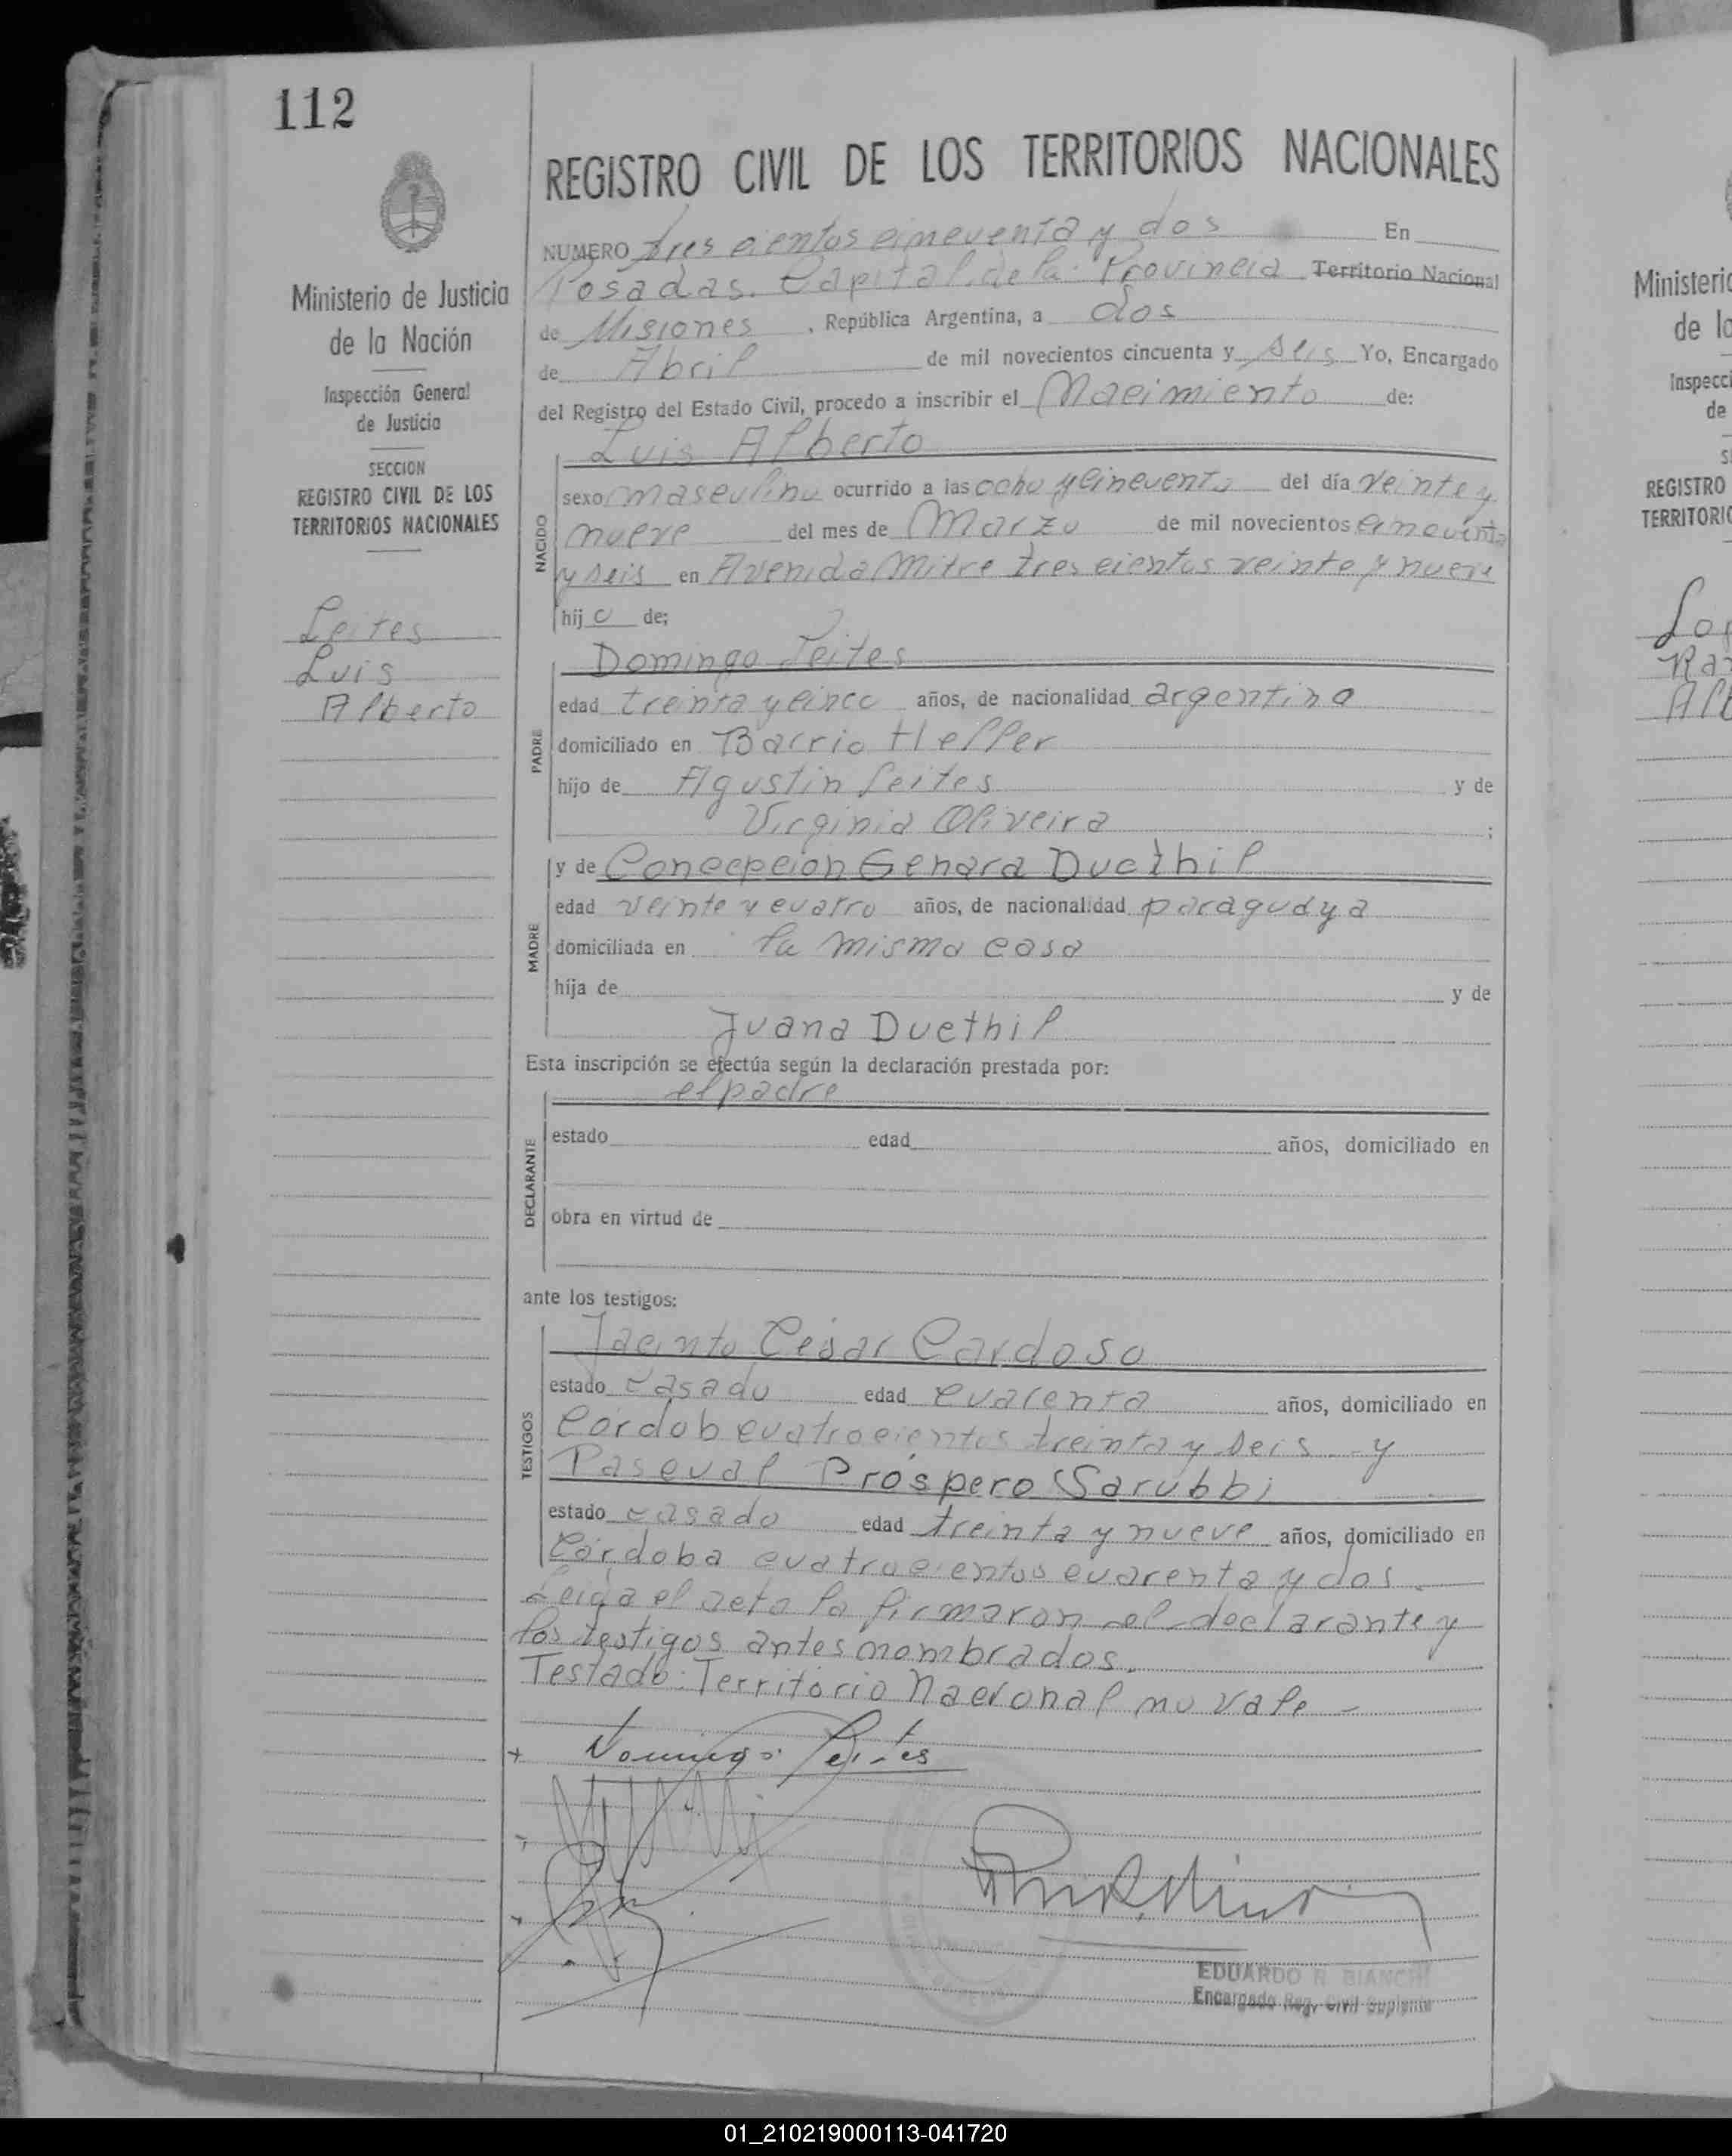 112
Ministerio de Justicia
de la Nación
Inspección General
de Justicia
SECCION
REGISTRO CIVIL DE LOS
TERRITORIOS NACIONALES
Leites
Luis
Alberto
REGISTRO CIVIL DE LOS TERRITORIOS NACIONALES
NUMERO tres cientos cincuenta y dos En
Posadas. Capital de la Provincia Territorio Nacional
de Misiones, República Argentina, a dos
de Abril de mil novecientos cincuenta y seis Yo, Encargado
del Registro del Estado Civil, procedo a inscribir el Nacimiento de:
Luis Alberto
NACIDO
sexo masculino ocurrido a las ocho y cincuenta del día veinte y
nueve del mes de Marzo de mil novecientos cincuenta
y seis en Avenida Mitre tres cientos veinte y nueve
hijo de;
PADRE
Domingo Leites
edad treinta y cinco años, de nacionalidad argentina
domiciliado en Barrio Heller
hijo de Agustin Leites y de
Virginia Oliveira ;
MADRE
y de Concepcion Genara Ducthil
edad veinte y cuatro años, de nacionalidad paraguaya
domiciliada en la misma casa
hija de y de
Juana Ducthil
Esta inscripción se efectúa según la declaración prestada por:
DECLARANTE
el padre
estado edad años, domiciliado en
obra en virtud de
ante los testigos:
TESTIGOS
Jacinto César Cardoso
estado casado edad cuarenta años, domiciliado en
Córdob cuatrocientos treinta y seis y
Pascual Próspero Sarubbi
estado casado edad treinta y nueve años, domiciliado en
Córdoba cuatrocientos cuarenta y dos.
Leida el acta la firmaron el declarante y
los testigos antes nombrados.
Testado: Territorio Nacional no vale
Domingo Leites
EDUARDO R. BIANCHI
Encargado Reg. Civil Suplente
Ministerio
de la
Inspecci
de
REGISTRO
TERRITORIO
01_210219000113-041720